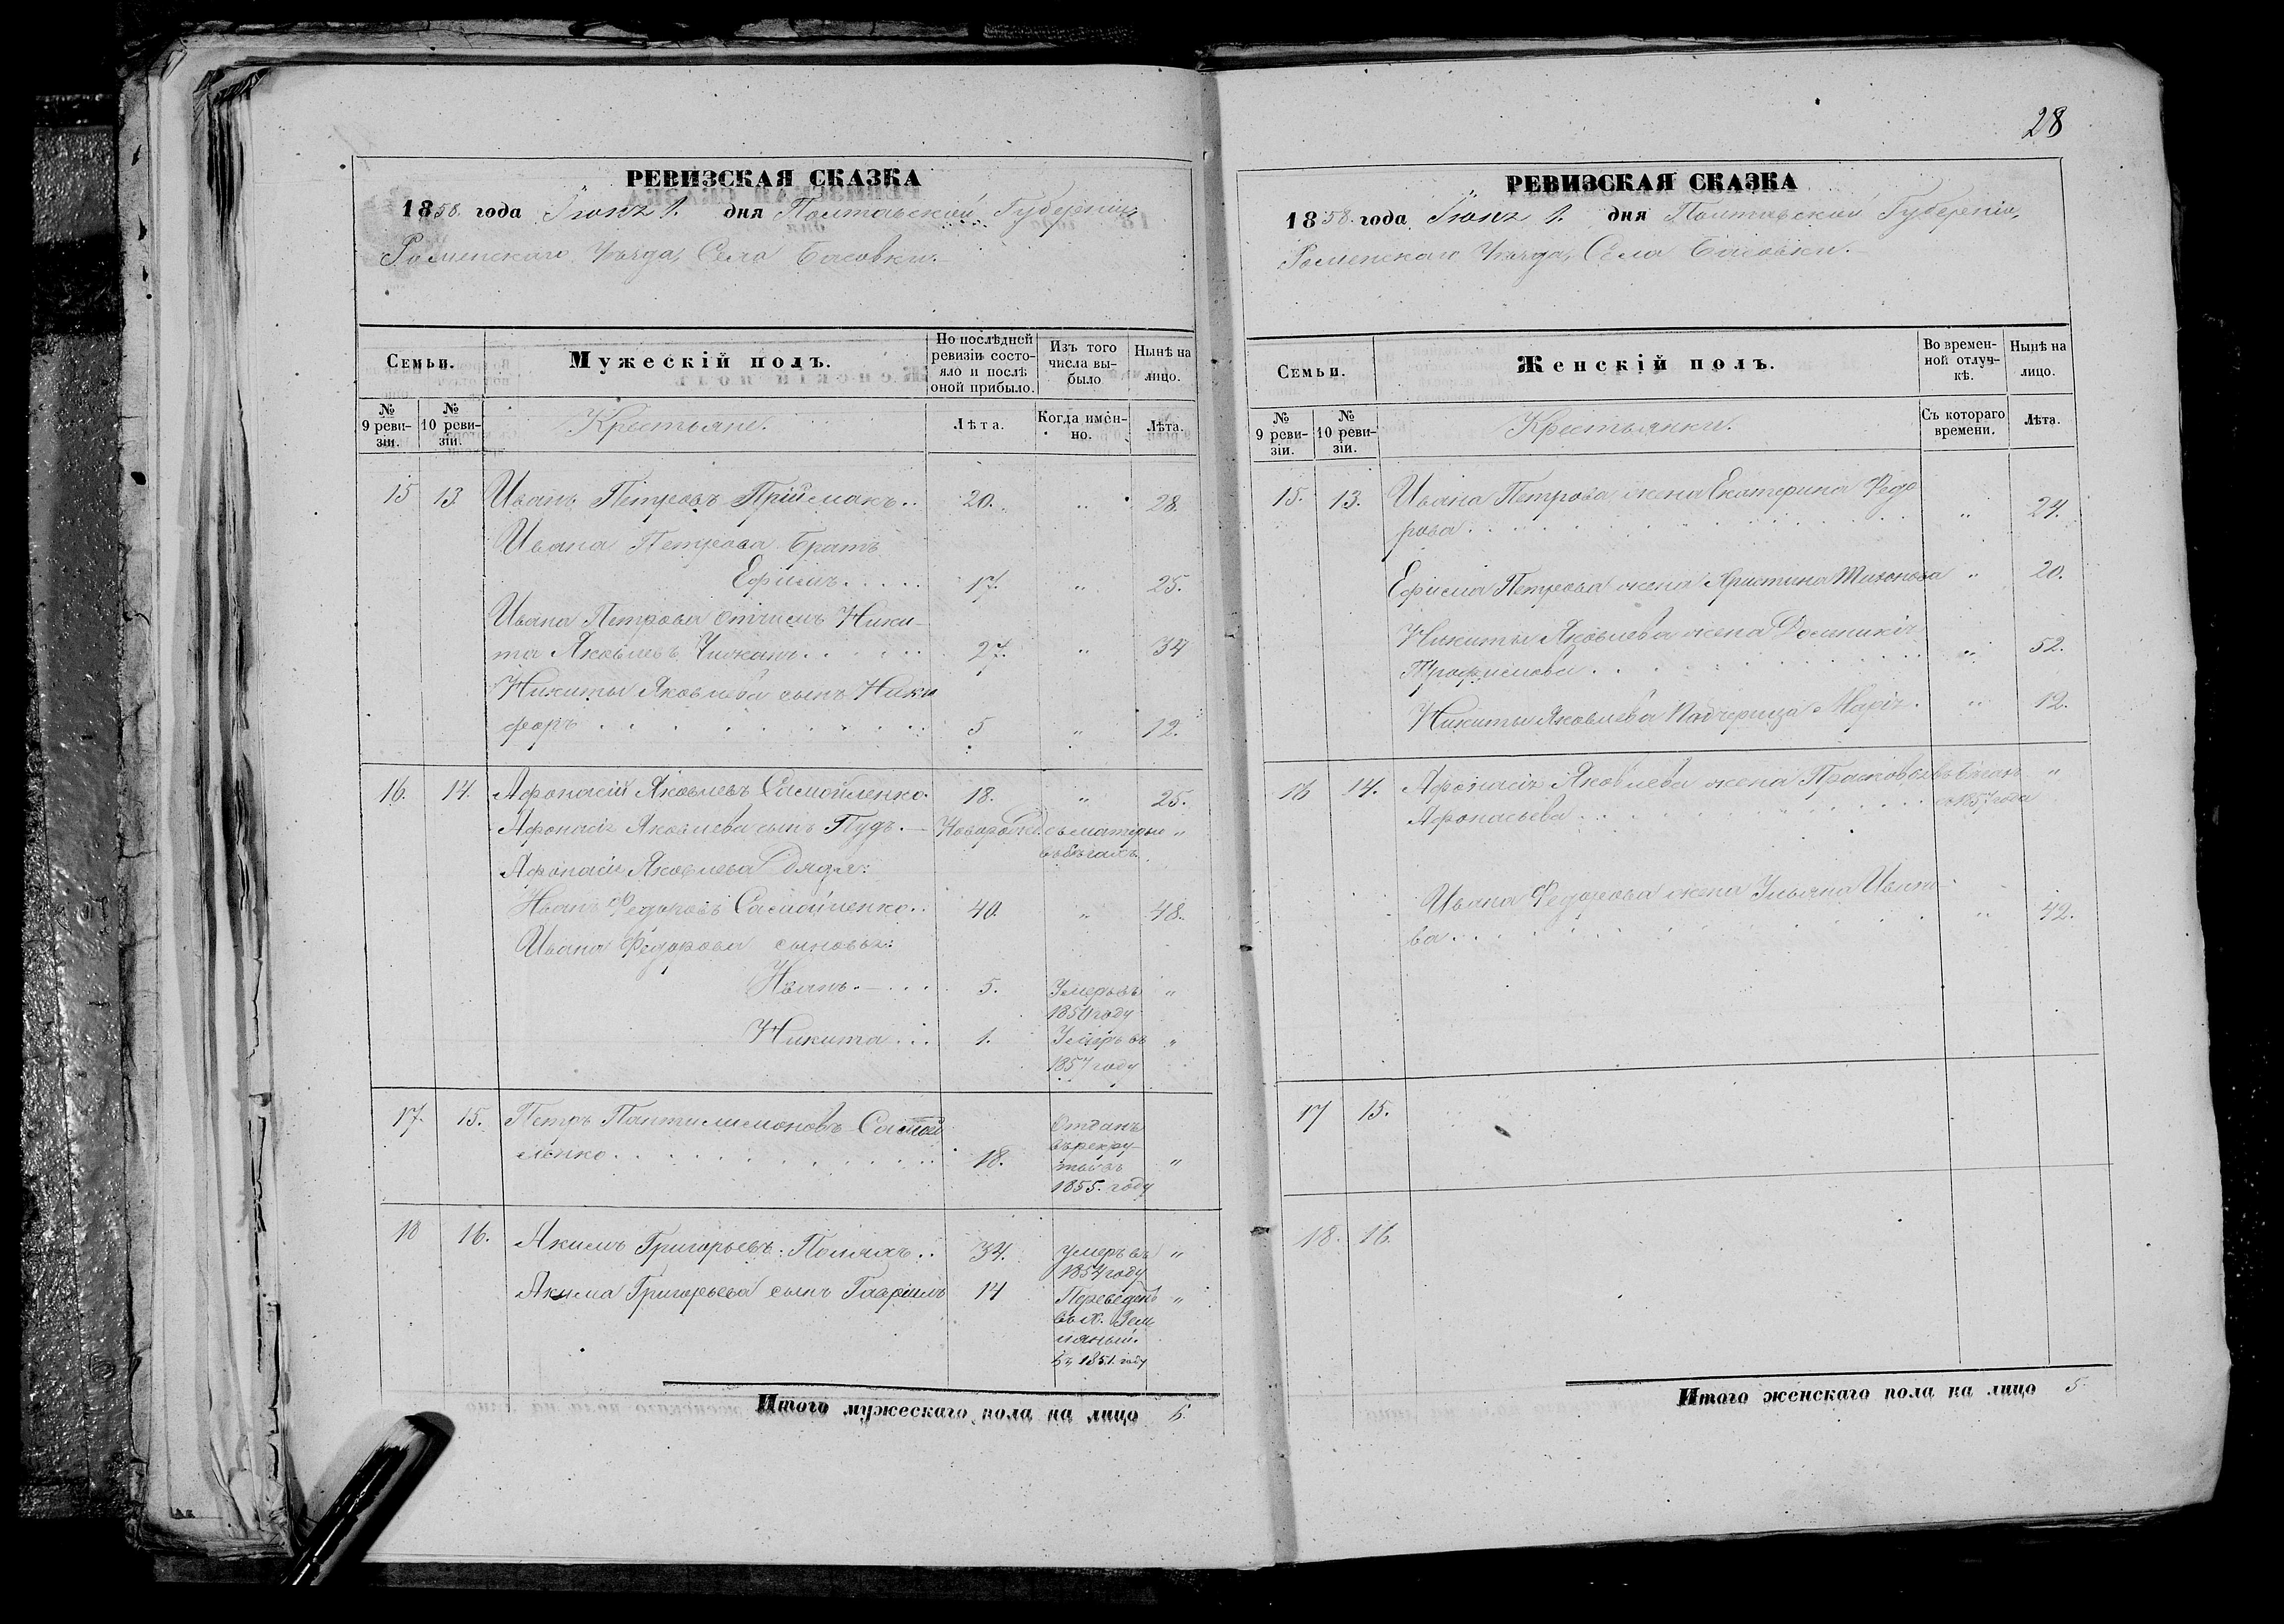 РЕВИЗСКАЯ СКАЗКА
1858. года Іюня 1. дня Полтавской Губерніи,
Роменскаго Уѣзда, Села Басовки.
Семьи.
Мужескій полъ.
По послѣдней ревизіи состояло и послѣ оной прибыло.
Изъ того числа выбыло
Нынѣ на лицо.
№ 9 ревизіи.
№ 10 ревизіи.
Крестьяне.
Лѣта.
Когда именно.
Лѣта.
15 13 Иванъ Петровъ Приймакъ.. 20. " 28.
Ивана Петрова Братъ
Ефимъ..... 17. " 25.
Ивана Петрова отчимъ Ники-
та Яковлевъ 27. " 34
Никиты Яковлева сынъ Ники
форъ 5 " 12.
16. 14. Афонасій Яковлевъ Самойленко. 18. " 25.
Афонасія Яковлева сынъ Пудъ. Новорожд. съ матерью "
въ бѣгахъ.
Афонасія Яковлева дядя:
Иванъ Федоровъ Самойленко.. 40. " 48.
Ивана Федорова сыновья:
Иванъ.... 5. Умеръ въ "
году
Никита... 1. Умеръ въ "
1857 году
17. 15. Петръ Пантилимоновъ Самой
ленко 18. Отданъ
въ рекру-
ты въ "
1855. году
18 16. Якимъ Григорьевъ: .. 34. Умеръ въ "
1854 году
Якима Григорьева сынъ Гавріилъ 14 Переведенъ "
въ х. Зем
ляный.
въ 1851. году
Итого мужескаго пола на лицо 6.
28
РЕВИЗСКАЯ СКАЗКА
1858. года Іюня 1. дня Полтавской Губерніи,
Роменскаго Уѣзда, Села Басовки.
Семьи.
Женскій полъ.
Во временной отлучкѣ.
Нынѣ на лицо.
№ 9 ревизіи.
№ 10 ревизіи.
Крестьянки.
Съ котораго времени.
Лѣта.
15. 13. Ивана Петрова жена Екатерина Федо
рова " 24.
Ефима Петрова жена Христина Тихонова " 20.
Никиты Яковлева жена Домникія
Трофимова " 52.
Никиты Яковлева Падчерица Марія. " 12.
16 14. Афонасія Яковлева жена Прасковья въ бѣгахъ "
Афонасьева с 1857 года
Ивана Федорова жена Ульяна Ивано-
ва " 42.
17 15.
18. 16.
Итого женскаго пола на лицо 5.